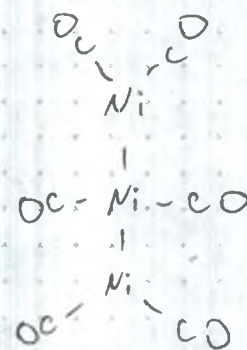 OC CO
Ni
OC - Ni - CO
Ni
OC CO